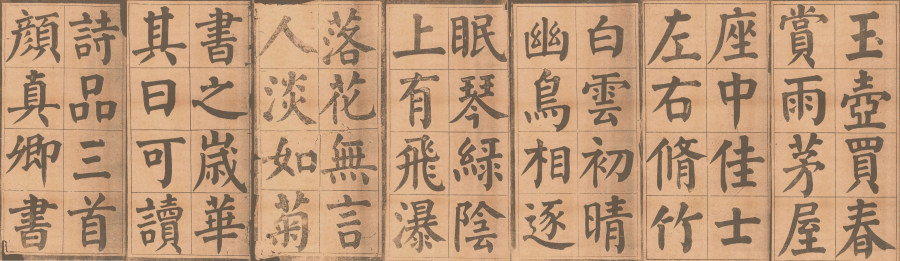 玉壺買春
賞雨茅屋
座中佳士
左右脩竹
白雲初晴
幽鳥相逐
眠琴綠陰
上有飛瀑
落花無言
人淡如菊
書之歲華
其曰可讀
詩品三首
顏真卿書